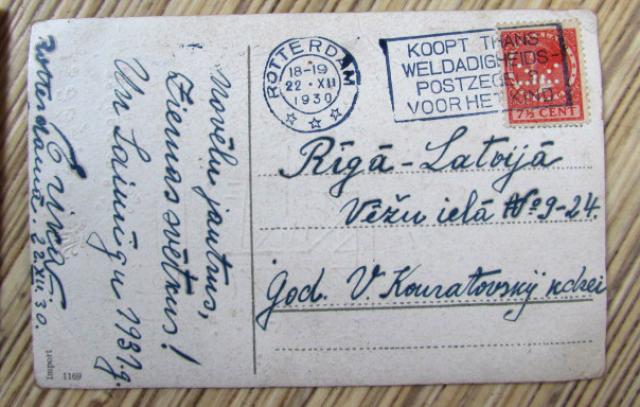 Novēlu jautrus,
Ziemas svētkus!
Un Laimīgu 1931.g.
22.XII.30.
Import 1169
ROTTERDAM
18-19
22·XII
1930
KOOPT THANS
WELDADIGHEIDS-
POSTZEG
VOOR HET KIND
7½ CENT
Rīgā-Latvijā
Vēžu ielā No 9-24.
God. V. Kouratovský kdzei